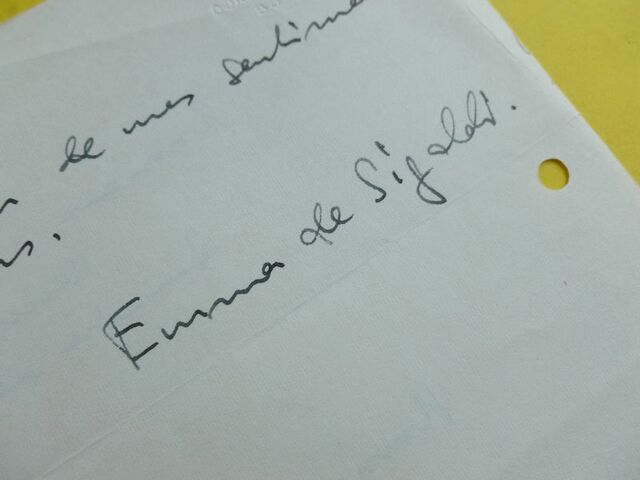 de mes sentime
Emma de Sigaldi.